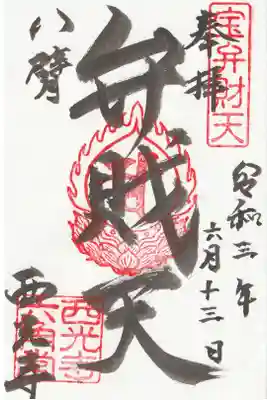 宝弁財天
奉拝
令和三年
六月十三日
弁財天
八臂
西光寺
西光寺
六角堂